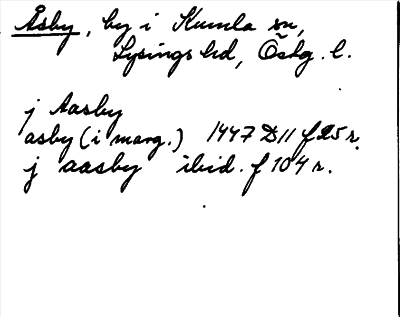 Åsby, by i Kumla sn,
Lysings hd, Östg. l.
j Aasby
asby (i marg.) 1447 D 11 f 25 r.
j aasby ibid. f 104 r.